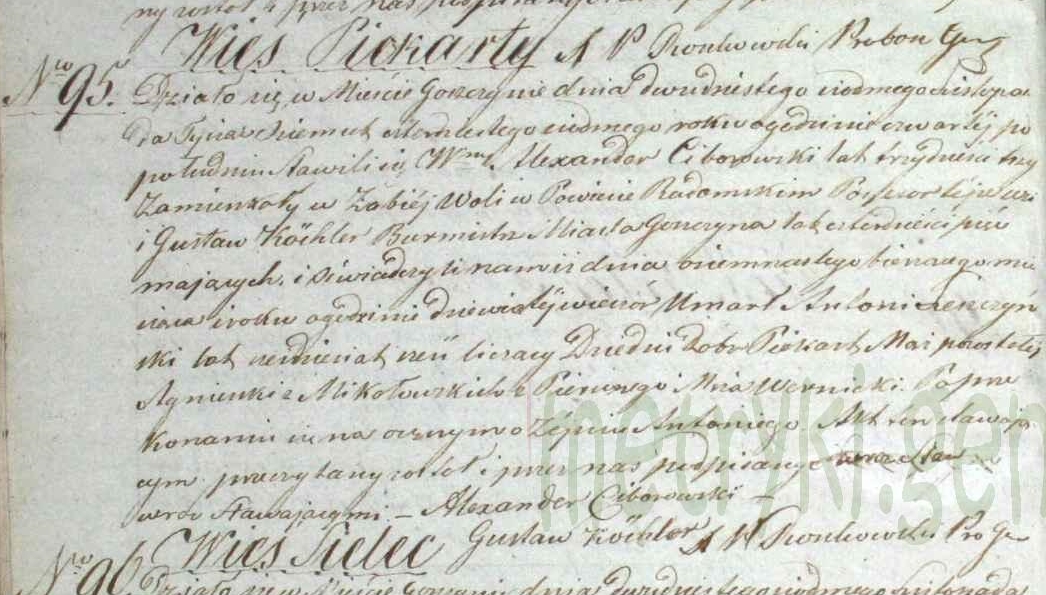 ny został i przez nas podpisa
Wieś Piekarty A P Pronkowski Probon Gosz
Nro 95. Działo się w Mieście Goszczynie dnia dwudziestego siodmego Listopa
da Tysiac osiemset osiemdziestego siodmego roku o godzinie czwartej po
południu Stawili się Wny Alexander Ciborowski lat trzydzieści trzy
Zamieszkały w Zabiej Woli w Powiecie Radomskim Possesor tejze wsi
i Gustaw Köhler Burmistrz Miasta Goszczyna lat czterdzieści pięć
mających, i oświadczyli nam iż dnia osiemnastego bieżącego mie
siąca i roku o godzinie dziewiątej wieczor Umarł Antoni Łenczyń
ski lat sześć liczący Dziedzic dobr Piekart Mąż pozostałej
Agnieszki z Mikołowskich z Pierwszego Mża Wernicki. Po prze
konaniu się na ocznym o Zejściu Antoniego. Akt ten stawają
cym przeczytany został i przez nas podpisanego
wroz Stawającymi – Alexander Ciborowski –
Gustaw Köhler A P Pronkowski Pro Go
Nro 96. Wieś Sielec
Działo się w Mieście dnia dwudziestego siodmego Listopada
metryki.gen